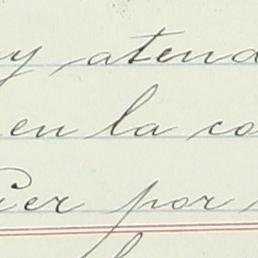 y atend
en la co
ier por